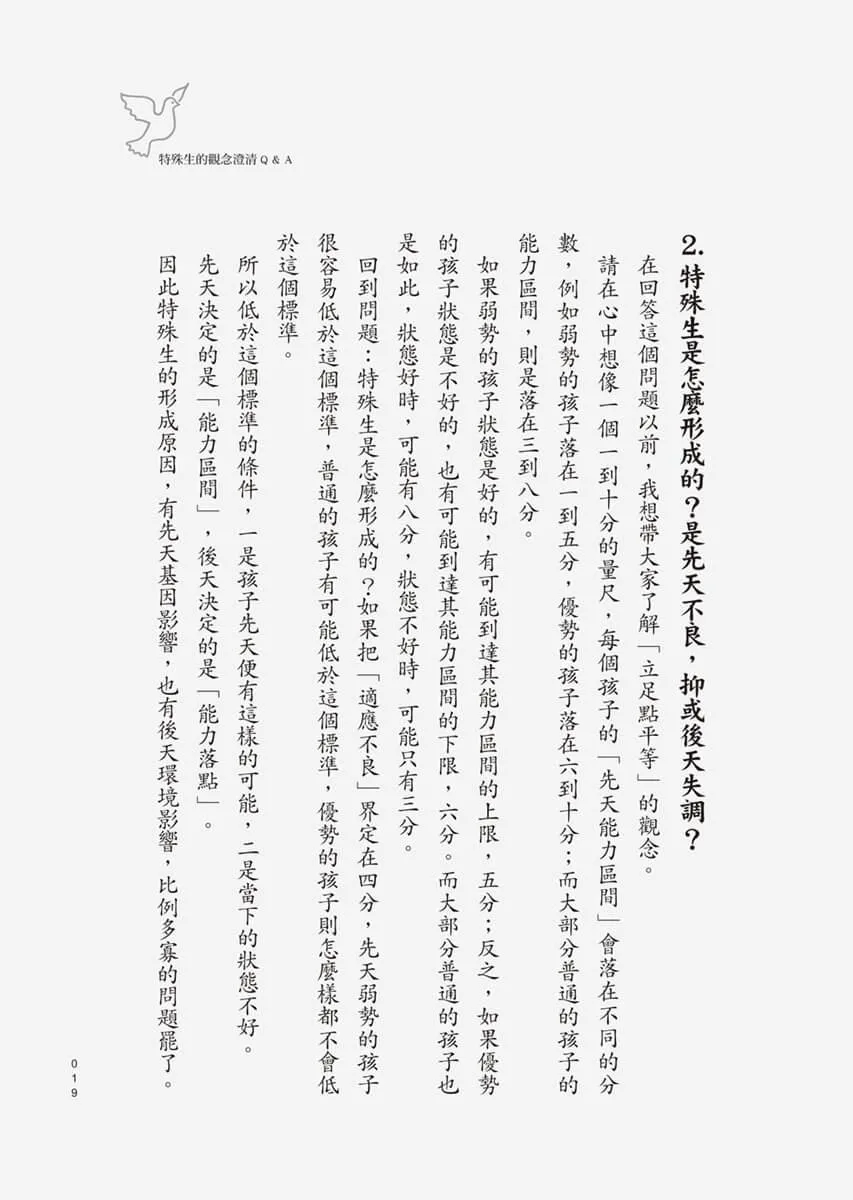 特殊生的觀念澄清Q & A
2. 特殊生是怎麼形成的？是先天不良，抑或後天失調？
在回答這個問題以前，我想帶大家了解「立足點平等」的觀念。
請在心中想像一個一到十分的量尺，每個孩子的「先天能力區間」會落在不同的分
數，例如弱勢的孩子落在一到五分，優勢的孩子落在六到十分；而大部分普通的孩子的
能力區間，則是落在三到八分。
如果弱勢的孩子狀態是好的，有可能到達其能力區間的上限，五分；反之，如果優勢
的孩子狀態是不好的，也有可能到達其能力區間的下限，六分。而大部分普通的孩子也
是如此，狀態好時，可能有八分，狀態不好時，可能只有三分。
回到問題：特殊生是怎麼形成的？如果把「適應不良」界定在四分，先天弱勢的孩子
很容易低於這個標準，普通的孩子有可能低於這個標準，優勢的孩子則怎麼樣都不會低
於這個標準。
所以低於這個標準的條件，一是孩子先天便有這樣的可能，二是當下的狀態不好。
先天決定的是「能力區間」，後天決定的是「能力落點」。
因此特殊生的形成原因，有先天基因影響，也有後天環境影響，比例多寡的問題罷了。
019